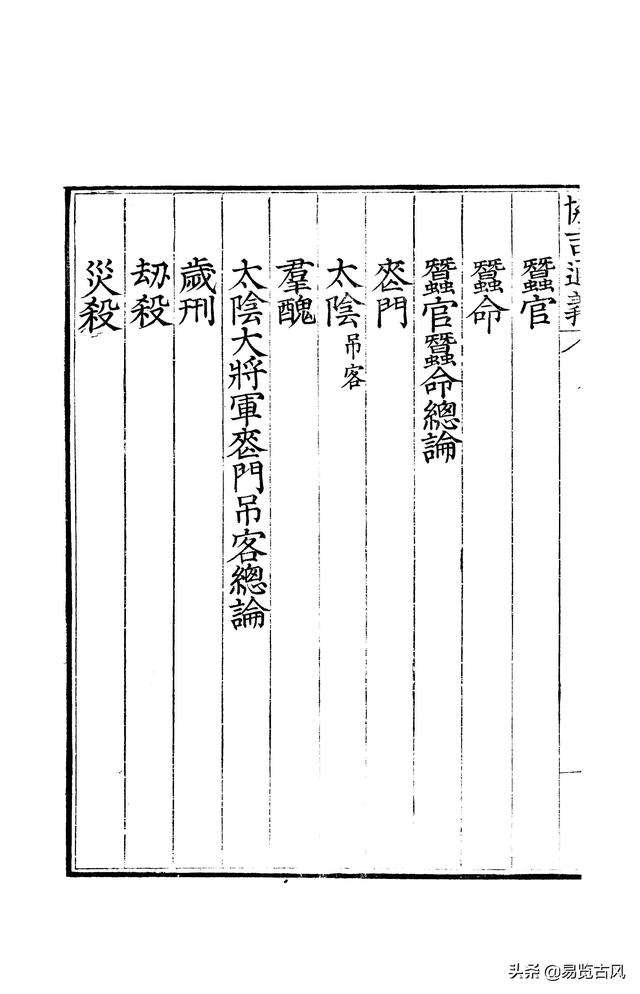 協吉通義
蠶官
蠶命
蠶官蠶命總論
喪門
太陰 吊客
羣醜
太陰大將軍喪門吊客總論
歲刑
刼殺
災殺
头条 @易览古风